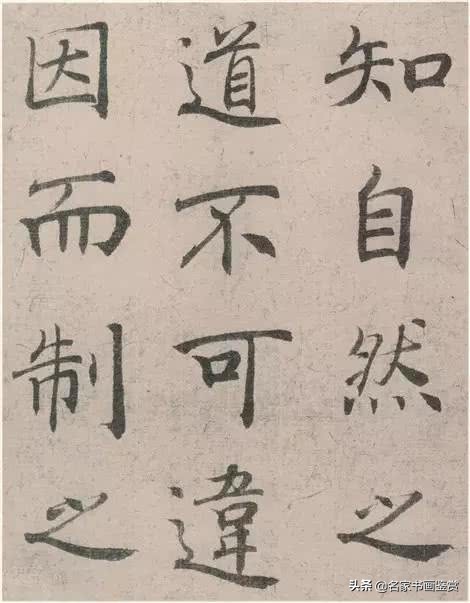 知自然之
道不可違
因而制之
头条 @名家书画鉴赏